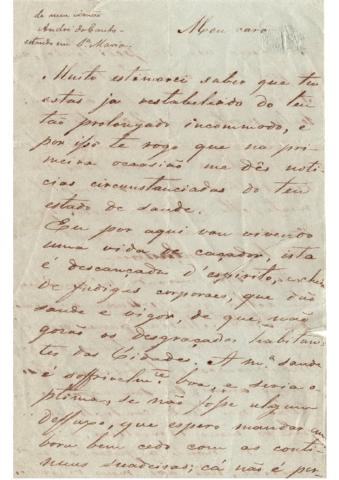 de meu irmão
André do Canto
estando em Sta Maria.
Meu caro
Muito estimarei saber que tu
estás ja restabelecido do teu
tão prolongado incommodo, e
por isso te rogo que na pri-
meira occasião me dês noti-
cias circunstanciadas do teu
estado de saude.
Eu por aqui vou vivendo
uma vida de caçador, isto
é descançada d'espirito, e cheia
de fadigas corporaes, que dão
saude e vigor, de que não
gozão os desgraçados habitan-
tes das Cidades. A m.ª saude
é soffrivelm.te boa, e seria o
ptima, se não fosse algum
defluxo, que espero mandar em
bora bem cedo com as conti-
nuas suadeiras; cá não é pr